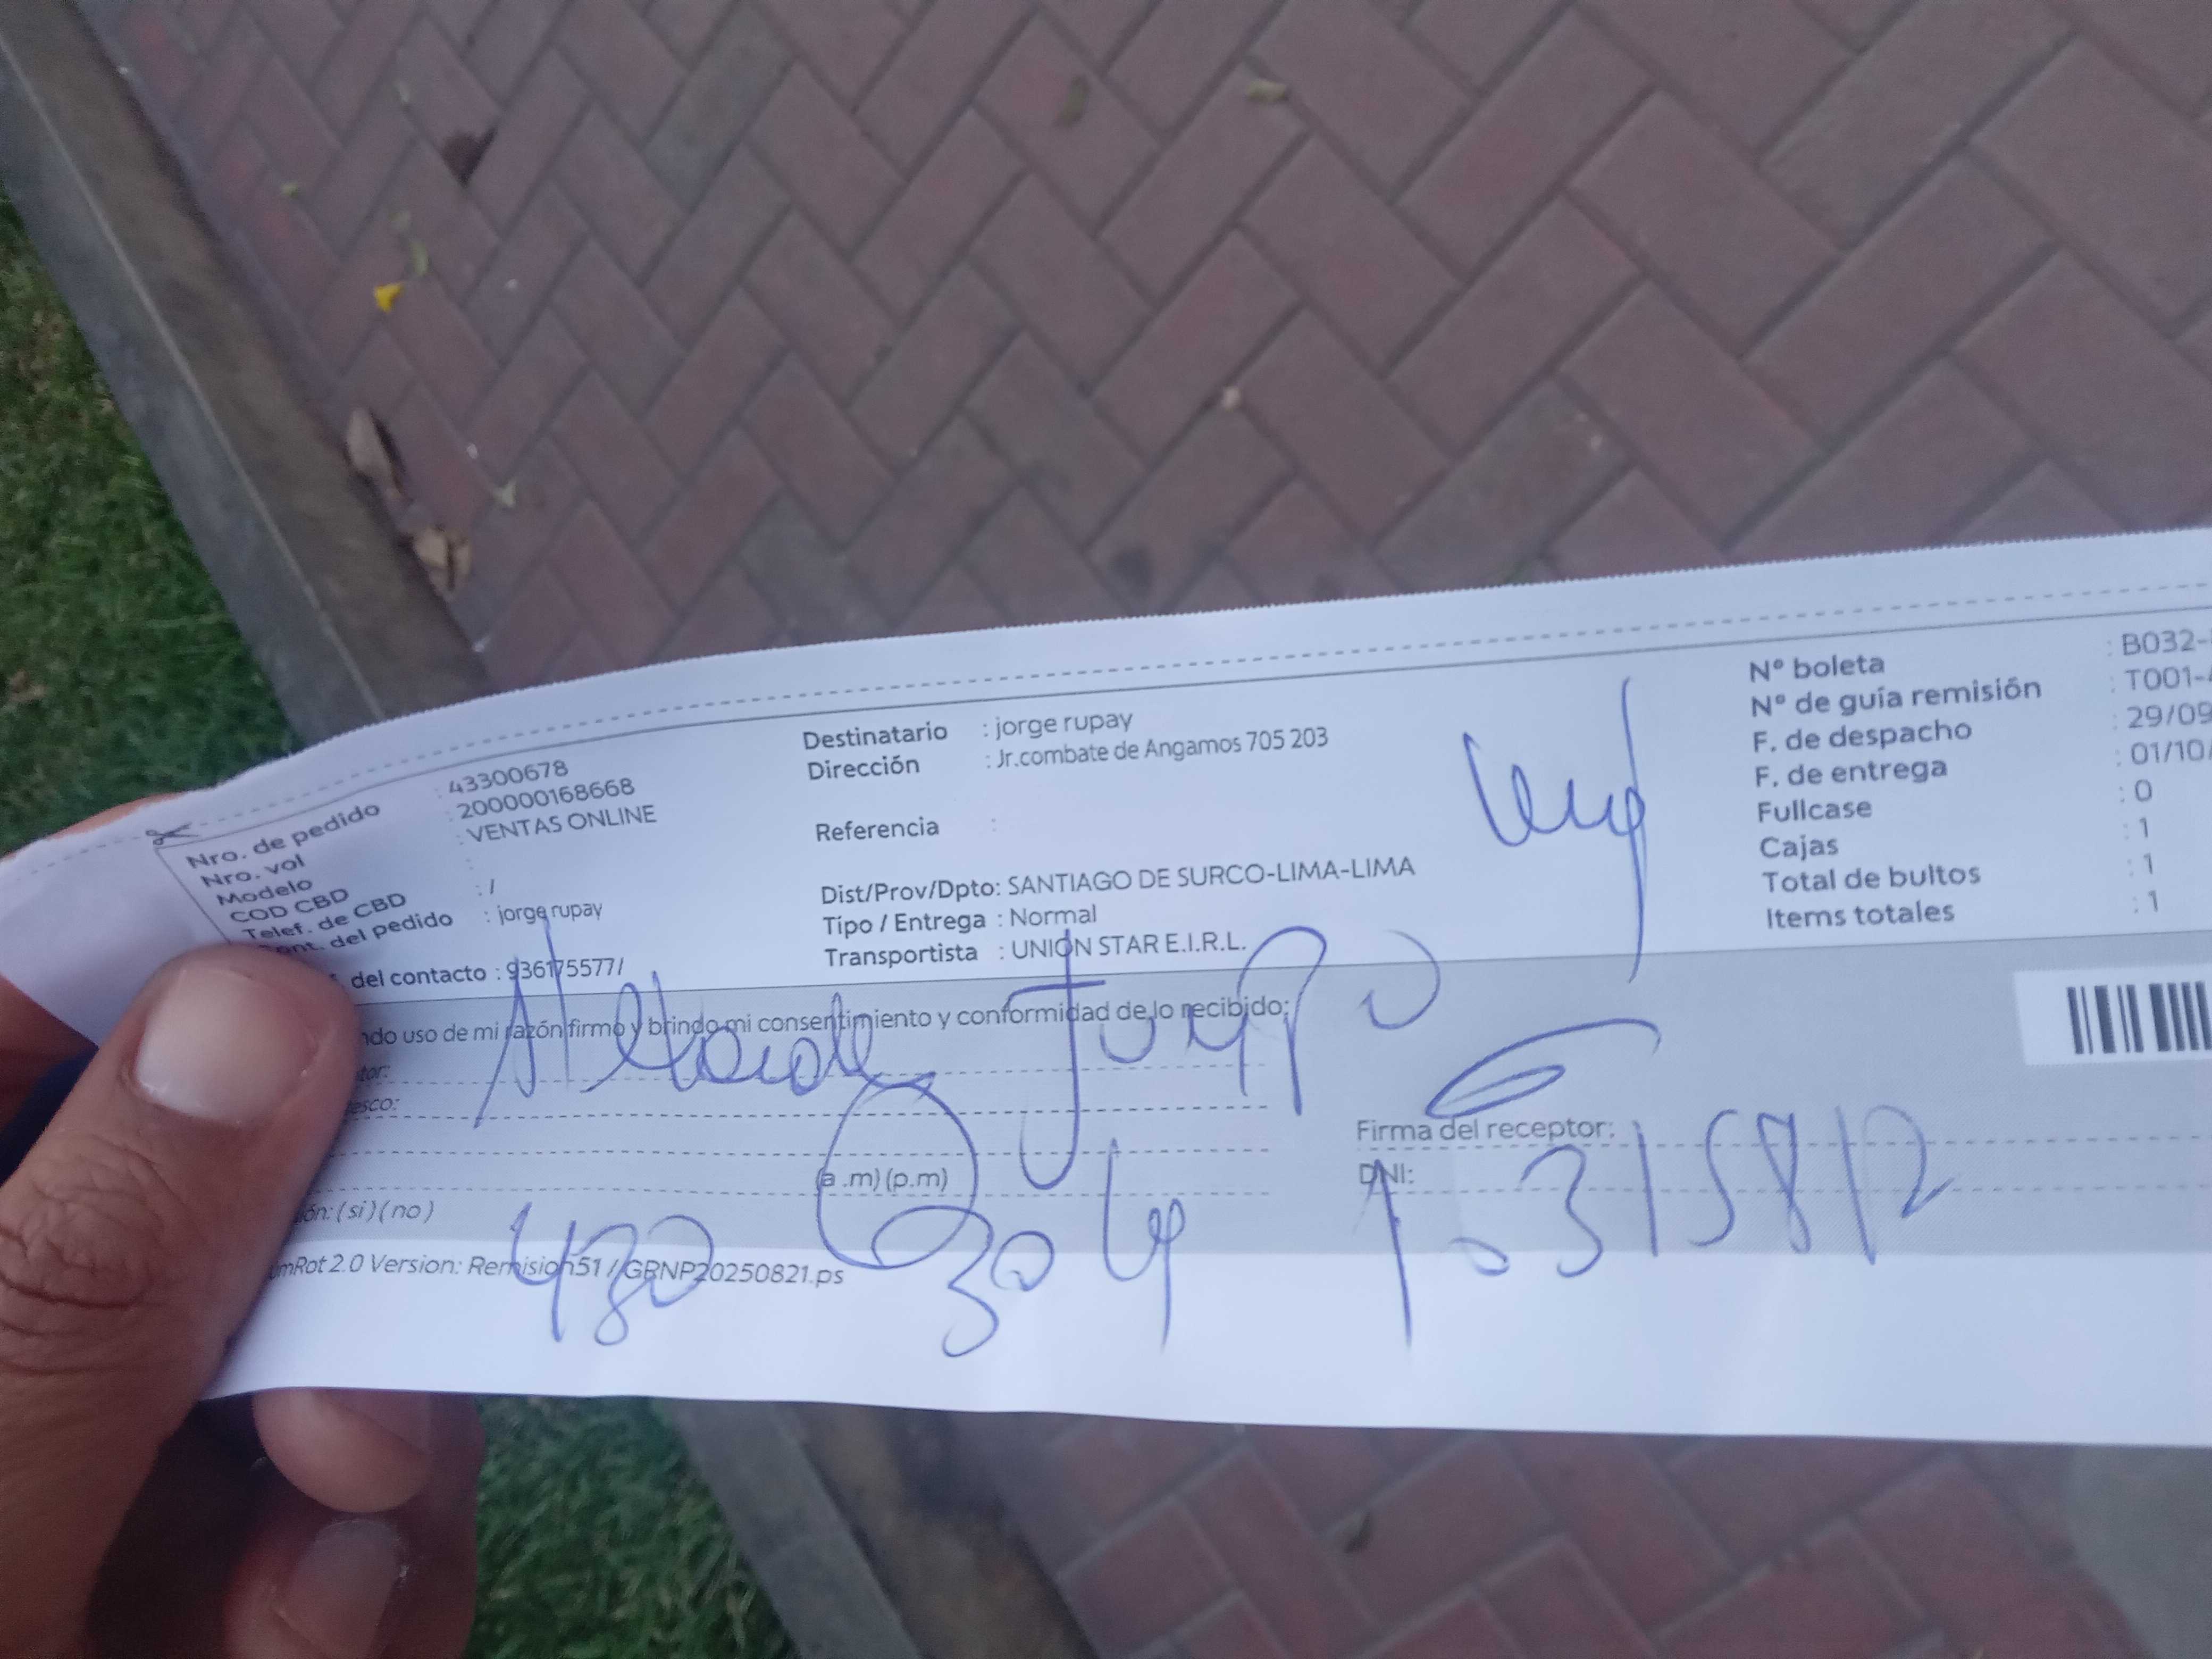 Nro. de pedido : 43300678
Nro. vol : 200000168668
Modelo : VENTAS ONLINE
COD CBD :
Telef. de CBD : /
Cont. del pedido : jorge rupay
f. del contacto : 936175577/
Destinatario : jorge rupay
Dirección : Jr.combate de Angamos 705 203
Referencia :
Dist/Prov/Dpto: SANTIAGO DE SURCO-LIMA-LIMA
Tipo / Entrega : Normal
Transportista : UNION STAR E.I.R.L.
N° boleta : B032-
N° de guía remisión : T001-
F. de despacho : 29/09
F. de entrega : 01/10/
Fullcase : 0
Cajas : 1
Total de bultos : 1
Items totales : 1
ndo uso de mi razón firmo y brindo mi consentimiento y conformidad de lo recibido:
tor:
esco:
(a .m) (p.m)
Firma del receptor:
DNI: 10315812
ón: ( si ) ( no )
480
mRot 2.0 Version: Remision51 / GRNP20250821.ps